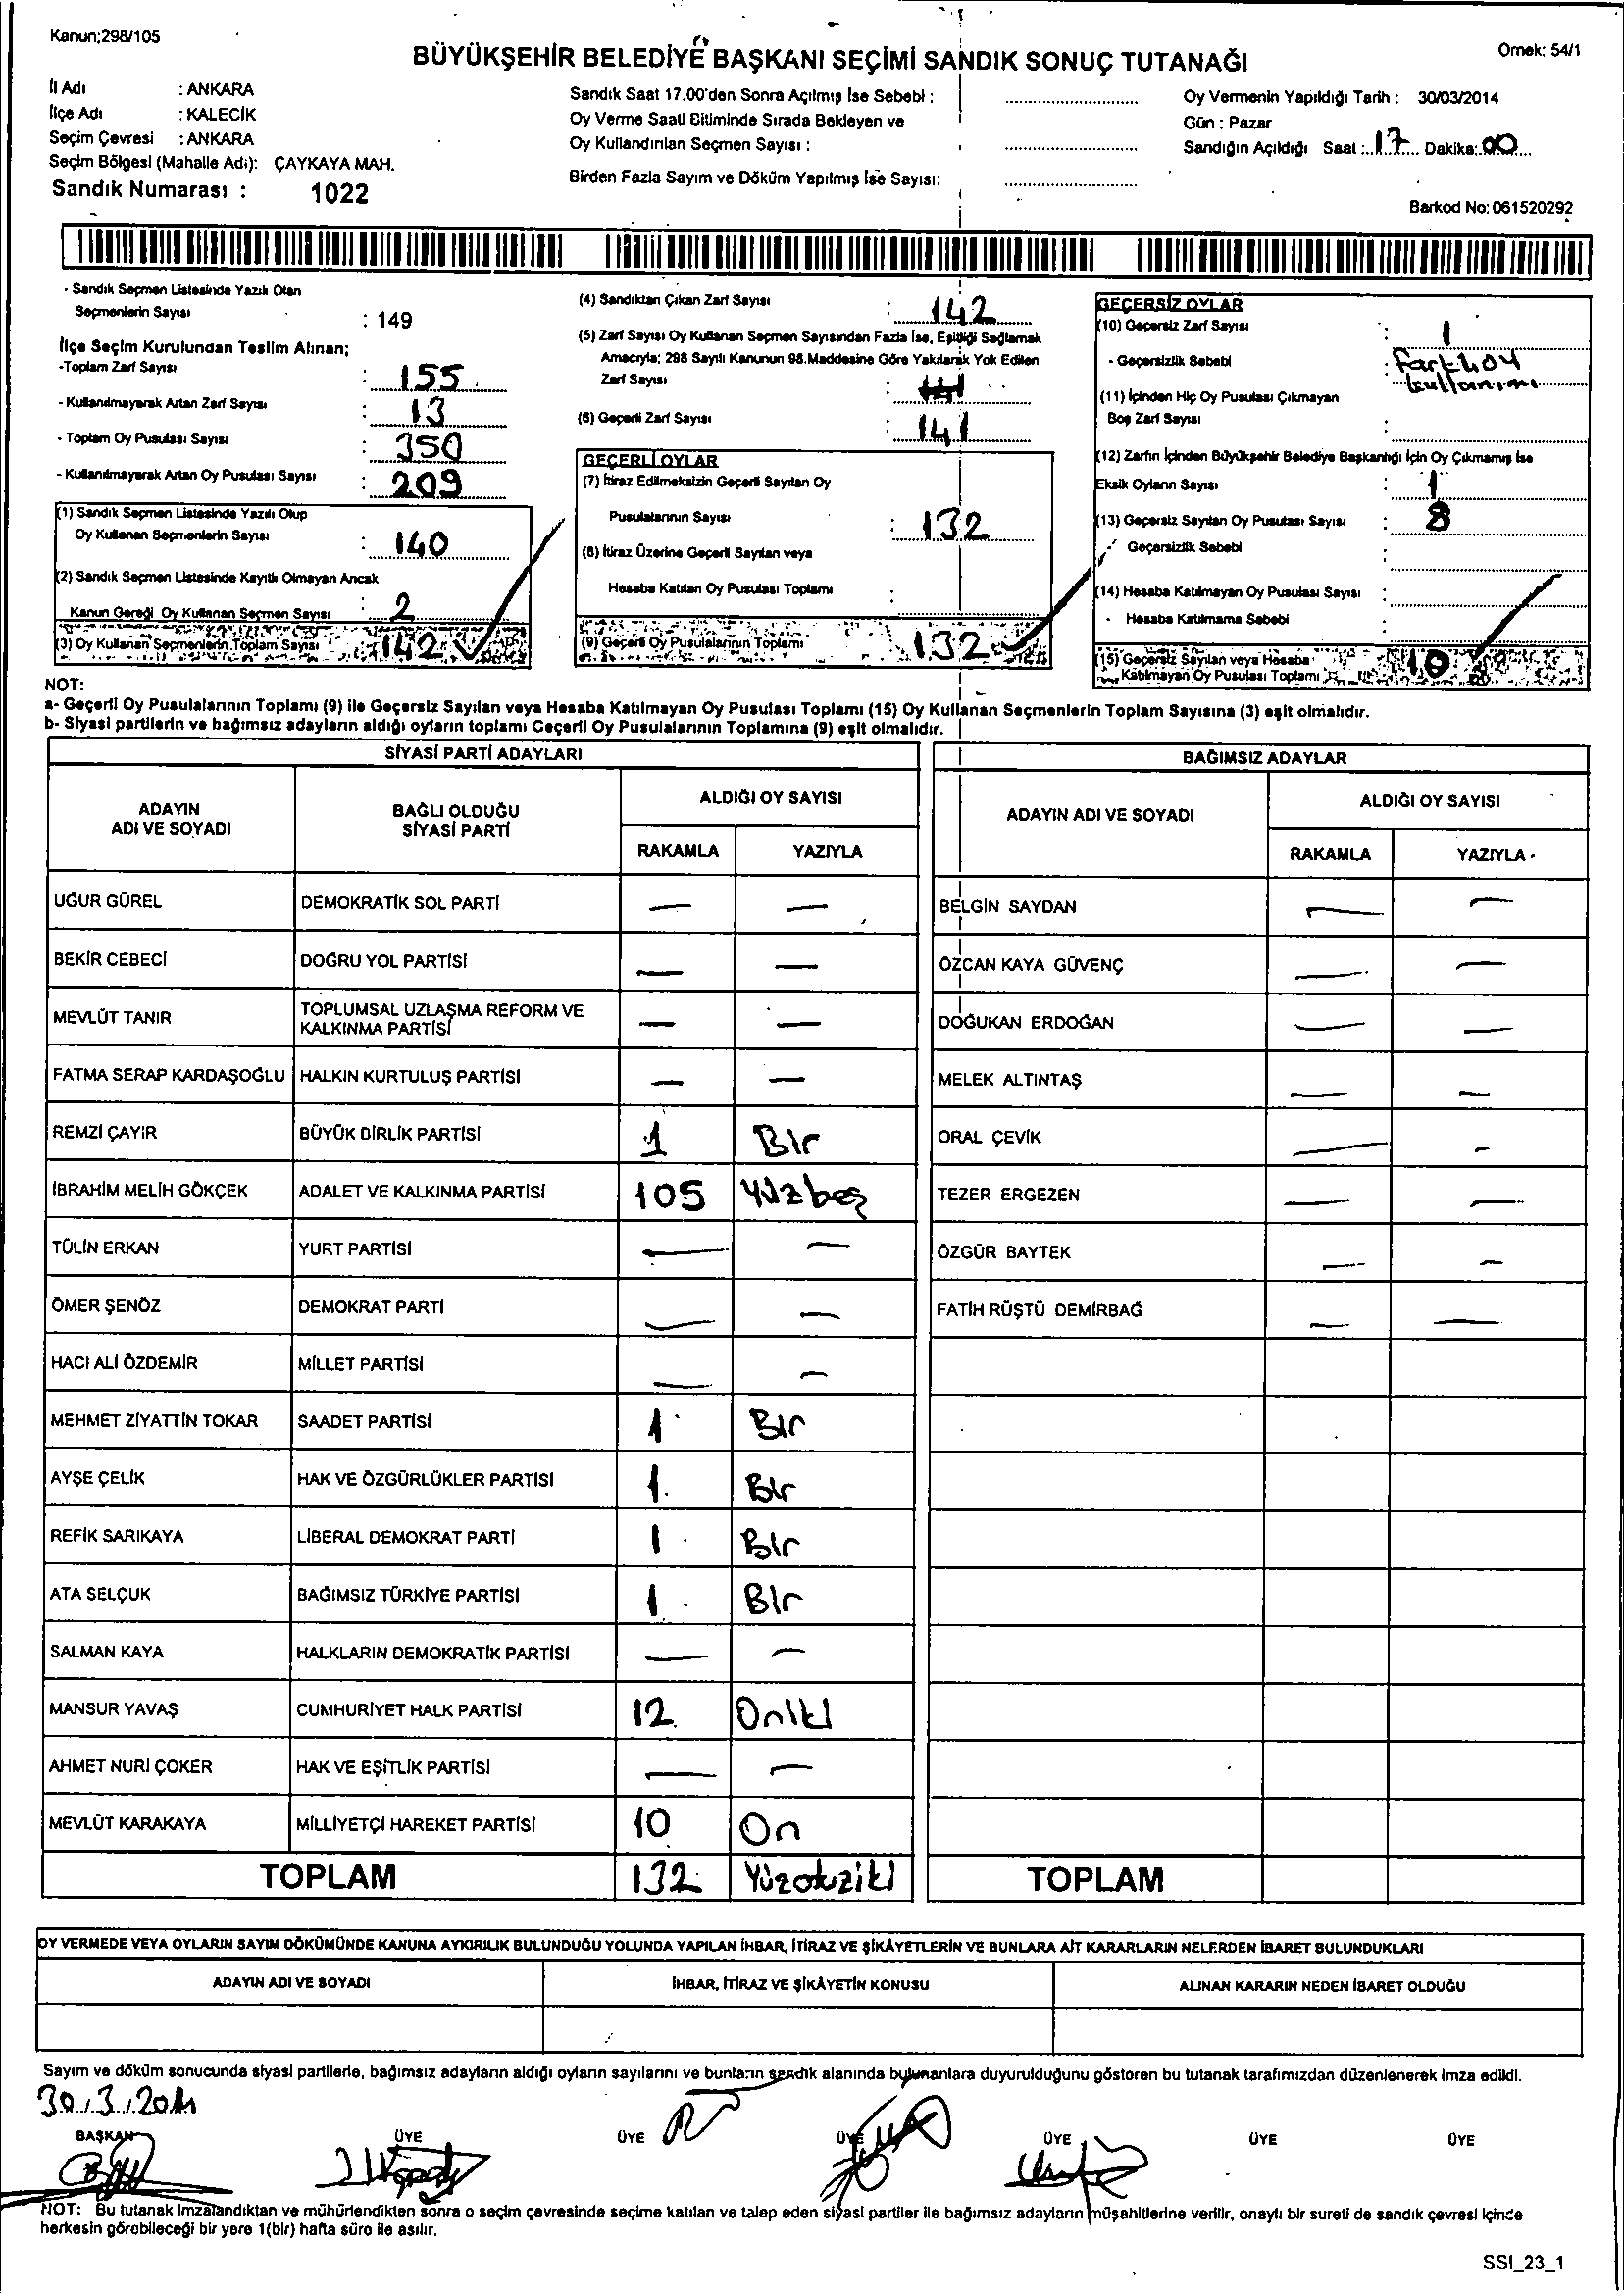 Kanun;298/105
BÜYÜKŞEHİR BELEDİYE BAŞKANI SEÇİMİ SANDIK SONUÇ TUTANAĞI
Örnek: 54/1
İl Adı : ANKARA
İlçe Adı : KALECİK
Seçim Çevresi : ANKARA
Seçim Bölgesi (Mahalle Adı): ÇAYKAYA MAH.
Sandık Numarası : 1022
Sandık Saat 17.00'den Sonra Açılmış İse Sebebi :
Oy Verme Saati Bitiminde Sırada Bekleyen ve
Oy Kullandırılan Seçmen Sayısı :
Birden Fazla Sayım ve Döküm Yapılmış İse Sayısı:
Oy Vermenin Yapıldığı Tarih : 30/03/2014
Gün : Pazar
Sandığın Açıldığı Saat : 17 Dakika: 00
Barkod No: 061520292
- Sandık Seçmen Listesinde Yazılı Olan
Seçmenlerin Sayısı : 149
İlçe Seçim Kurulundan Teslim Alınan;
-Toplam Zarf Sayısı : 155
- Kullanılmayarak Artan Zarf Sayısı : 13
- Toplam Oy Pusulası Sayısı : 350
- Kullanılmayarak Artan Oy Pusulası Sayısı : 209
(1) Sandık Seçmen Listesinde Yazılı Olup
Oy Kullanan Seçmenlerin Sayısı : 140
(2) Sandık Seçmen Listesinde Kayıtlı Olmayan Ancak
Kanun Gereği Oy Kullanan Seçmen Sayısı : 2
(3) Oy Kullanan Seçmenlerin Toplam Sayısı : 142
(4) Sandıktan Çıkan Zarf Sayısı : 142
(5) Zarf Sayısı Oy Kullanan Seçmen Sayısından Fazla İse, Eşitliği Sağlamak
Amacıyla; 298 Sayılı Kanunun 98.Maddesine Göre Yakılarak Yok Edilen
Zarf Sayısı :
(6) Geçerli Zarf Sayısı : 141
GEÇERLİ OYLAR
(7) İtiraz Edilmeksizin Geçerli Sayılan Oy
Pusulalarının Sayısı : 132
(8) İtiraz Üzerine Geçerli Sayılan veya
Hesaba Katılan Oy Pusulası Toplamı :
(9) Geçerli Oy Pusulalarının Toplamı 132
GEÇERSİZ OYLAR
(10) Geçersiz Zarf Sayısı : 1
- Geçersizlik Sebebi : Farklı oy
kullanımı
(11) İçinden Hiç Oy Pusulası Çıkmayan
Boş Zarf Sayısı :
(12) Zarfın İçinden Büyükşehir Belediye Başkanlığı İçin Oy Çıkmamış İse
Eksik Oyların Sayısı : 1
(13) Geçersiz Sayılan Oy Pusulası Sayısı : 8
Geçersizlik Sebebi :
(14) Hesaba Katılmayan Oy Pusulası Sayısı :
- Hesaba Katılmama Sebebi :
(15) Geçersiz Sayılan veya Hesaba
Katılmayan Oy Pusulası Toplamı 10
NOT:
a- Geçerli Oy Pusulalarının Toplamı (9) ile Geçersiz Sayılan veya Hesaba Katılmayan Oy Pusulası Toplamı (15) Oy Kullanan Seçmenlerin Toplam Sayısına (3) eşit olmalıdır.
b- Siyasi partilerin ve bağımsız adayların aldığı oyların toplamı Geçerli Oy Pusulalarının Toplamına (9) eşit olmalıdır.
SİYASİ PARTİ ADAYLARI
ADAYIN
ADI VE SOYADI
BAĞLI OLDUĞU
SİYASİ PARTİ
ALDIĞI OY SAYISI
RAKAMLA YAZIYLA
UĞUR GÜREL DEMOKRATİK SOL PARTİ — —
BEKİR CEBECİ DOĞRU YOL PARTİSİ — —
MEVLÜT TANIR TOPLUMSAL UZLAŞMA REFORM VE
KALKINMA PARTİSİ — —
FATMA SERAP KARDAŞOĞLU HALKIN KURTULUŞ PARTİSİ — —
REMZİ ÇAYIR BÜYÜK BİRLİK PARTİSİ 1 Bir
İBRAHİM MELİH GÖKÇEK ADALET VE KALKINMA PARTİSİ 105 Yüzbeş
TÜLİN ERKAN YURT PARTİSİ — —
ÖMER ŞENÖZ DEMOKRAT PARTİ — —
HACI ALİ ÖZDEMİR MİLLET PARTİSİ — —
MEHMET ZİYATTİN TOKAR SAADET PARTİSİ 1 Bir
AYŞE ÇELİK HAK VE ÖZGÜRLÜKLER PARTİSİ 1 Bir
REFİK SARIKAYA LİBERAL DEMOKRAT PARTİ 1 Bir
ATA SELÇUK BAĞIMSIZ TÜRKİYE PARTİSİ 1 Bir
SALMAN KAYA HALKLARIN DEMOKRATİK PARTİSİ — —
MANSUR YAVAŞ CUMHURİYET HALK PARTİSİ 12 Oniki
AHMET NURİ ÇOKER HAK VE EŞİTLİK PARTİSİ — —
MEVLÜT KARAKAYA MİLLİYETÇİ HAREKET PARTİSİ 10 On
TOPLAM 132 Yüzotuziki
BAĞIMSIZ ADAYLAR
ADAYIN ADI VE SOYADI
ALDIĞI OY SAYISI
RAKAMLA YAZIYLA
BELGİN SAYDAN — —
ÖZCAN KAYA GÜVENÇ — —
DOĞUKAN ERDOĞAN — —
MELEK ALTINTAŞ — —
ORAL ÇEVİK — —
TEZER ERGEZEN — —
ÖZGÜR BAYTEK — —
FATİH RÜŞTÜ DEMİRBAĞ — —
TOPLAM
OY VERMEDE VEYA OYLARIN SAYIM DÖKÜMÜNDE KANUNA AYKIRILIK BULUNDUĞU YOLUNDA YAPILAN İHBAR, İTİRAZ VE ŞİKÂYETLERİN VE BUNLARA AİT KARARLARIN NELERDEN İBARET BULUNDUKLARI
ADAYIN ADI VE SOYADI İHBAR, İTİRAZ VE ŞİKÂYETİN KONUSU ALINAN KARARIN NEDEN İBARET OLDUĞU
Sayım ve döküm sonucunda siyasi partilerle, bağımsız adayların aldığı oyların sayılarını ve bunların sandık alanında bulunanlara duyurulduğunu gösteren bu tutanak tarafımızdan düzenlenerek imza edildi.
30.3.2014
BAŞKAN ÜYE ÜYE ÜYE ÜYE ÜYE ÜYE
NOT: Bu tutanak imzalandıktan ve mühürlendikten sonra o seçim çevresinde seçime katılan ve talep eden siyasi partiler ile bağımsız adayların müşahitlerine verilir, onaylı bir sureti de sandık çevresi içinde
herkesin görebileceği bir yere 1(bir) hafta süre ile asılır.
SSI_23_1